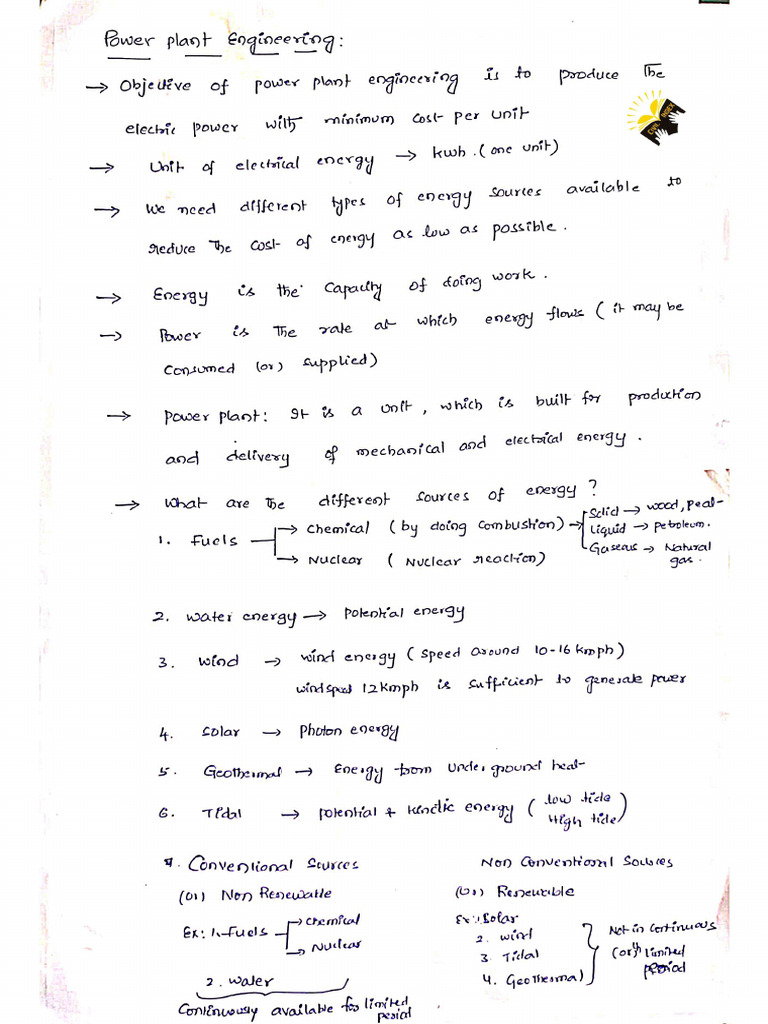 Power plant Engineering:
→ Objective of power plant engineering is to produce the
electric power with minimum cost per unit
→ Unit of electrical energy → kwh. (one unit)
→ We need different types of energy sources available to
reduce the cost of energy as low as possible.
→ Energy is the capacity of doing work.
→ Power is the rate at which energy flows (it may be
consumed (or) supplied)
→ Power plant: It is a unit, which is built for production
and delivery of mechanical and electrical energy.
→ What are the different sources of energy?
1. Fuels → chemical (by doing combustion) → Solid → wood, peat
Liquid → petroleum.
→ Nuclear (Nuclear reaction) Gaseous → Natural
gas.
2. Water energy → potential energy
3. Wind → wind energy (speed around 10-16 kmph)
wind speed 12kmph is sufficient to generate power
4. Solar → Photon energy
5. Geothermal → Energy from under ground heat
6. Tidal → potential + kinetic energy (low tide
High tide)
Conventional Sources
(or) Non Renewable
Ex: 1. Fuels → chemical
→ Nuclear
2. Water
Continuously available for limited
period
Non Conventional Sources
(or) Renewable
Ex: 1. Solar
2. Wind
3. Tidal
4. Geothermal
Not in Continuous
(or) limited
period